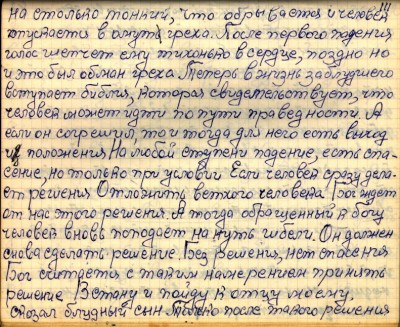 111
на столько тонкий, что обрывается и человек
опускается в омут греха. После первого падения
голос шепчет ему тихонько в сердце, поздно но
и это был обман греха Теперь в жизнь заблудшего
вступает библия, которая свидетельствует, что
человек может идти по пути праведности. А
если он согрешил, то и тогда для него есть выход
из положения На любой ступени падение, есть спа-
сение, но только при условии Если человек сразу дела-
ет решения Отложить ветхого человека. Бог ждет
от нас этого решения. А тогда обращенный к богу
человек вновь попадает на путь гибели. Он должен
снова сделать решение. Без решения, нет спасения
Бог считается с таким намерением принять
решение Встану и пойду к отцу моему.
сказал блудный сын только после такого решения